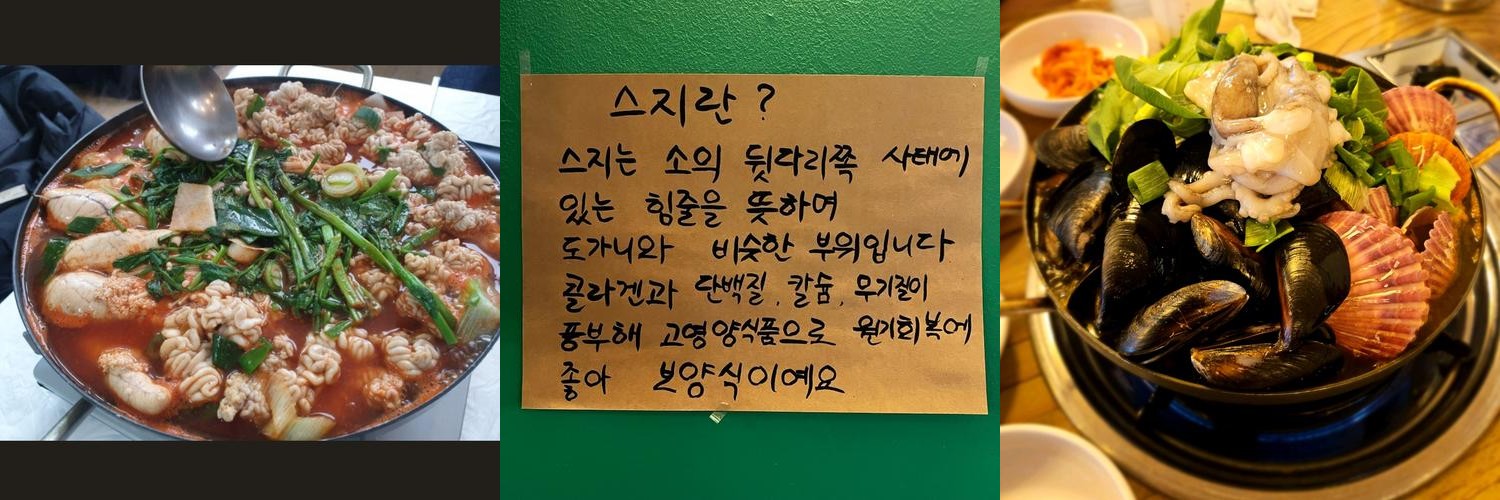 스지란 ?
스지는 소의 뒷다리쪽 사태에
있는 힘줄을 뜻하며
도가니와 비슷한 부위입니다
콜라겐과 단백질, 칼슘, 무기질이
풍부해 고영양식품으로 원기회복에
좋아 보양식이예요